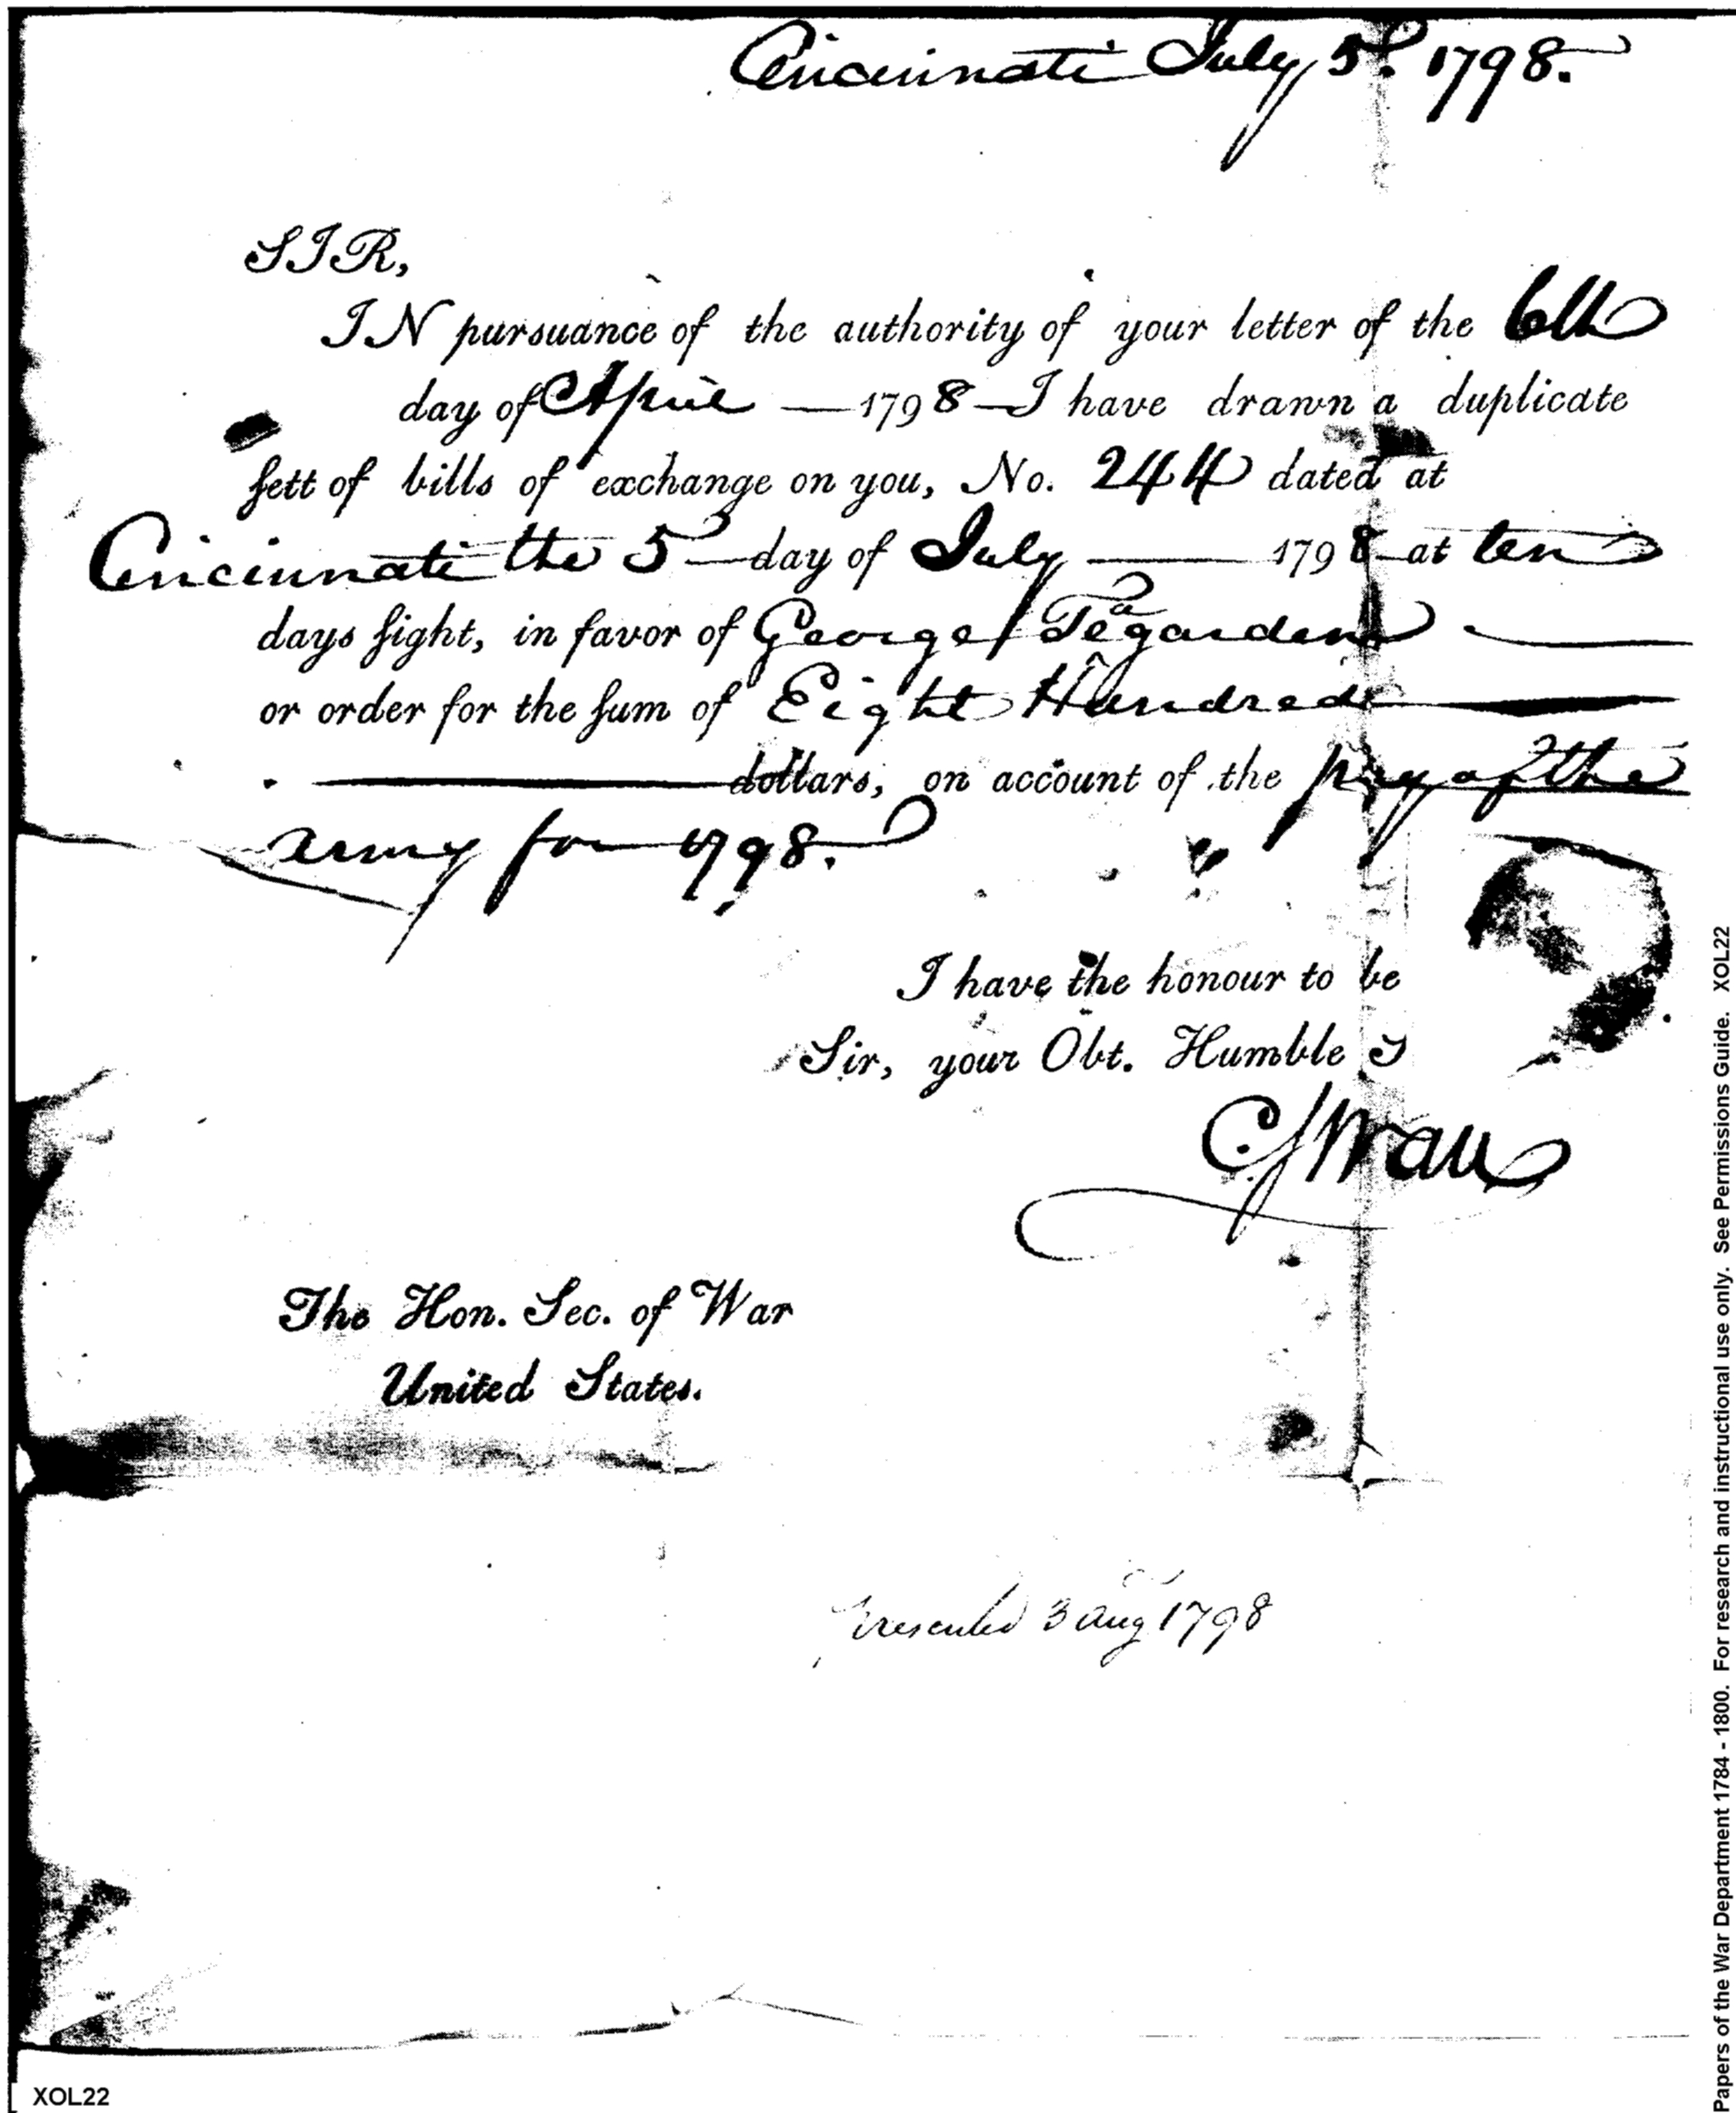 Cincinnati July 5th. 1798.
SIR,
IN pursuance of the authority of your letter of the 6th
day of April — 1798 — I have drawn a duplicate
sett of bills of exchange on you, No. 244 dated at
Cincinnati the 5 — day of July — 1798 at ten
days sight, in favor of George Tegarden
or order for the sum of Eight Hundred
dollars, on account of the pay of the
army for 1798.
I have the honour to be
Sir, your Obt. Humble S
C Swan
The Hon. Sec. of War
United States.
Presented 3 Aug 1798
XOL22
Papers of the War Department 1784 - 1800. For research and instructional use only. See Permissions Guide. XOL22